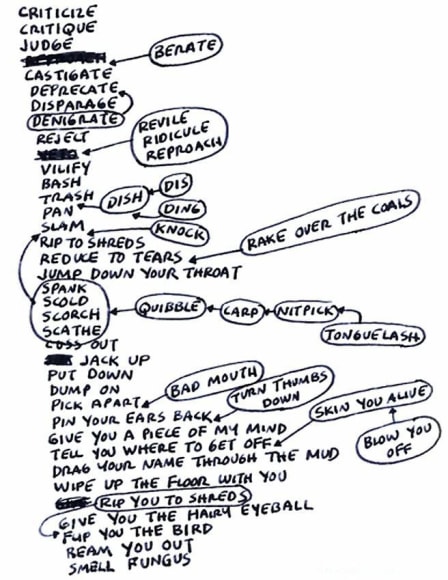 CRITICIZE
CRITIQUE
JUDGE
BERATE
CASTIGATE
DEPRECATE
DISPARAGE
DENIGRATE
REJECT
REVILE
RIDICULE
REPROACH
VILIFY
BASH
TRASH
DISH
DIS
PAN
DING
SLAM
KNOCK
RIP TO SHREDS
RAKE OVER THE COALS
REDUCE TO TEARS
JUMP DOWN YOUR THROAT
SPANK
SCOLD
SCORCH
QUIBBLE
CARP
NITPICK
SCATHE
TONGUELASH
CUSS OUT
JACK UP
PUT DOWN
BAD MOUTH
DUMP ON
TURN THUMBS
DOWN
PICK APART
SKIN YOU ALIVE
PIN YOUR EARS BACK
GIVE YOU A PIECE OF MY MIND
BLOW YOU
OFF
TELL YOU WHERE TO GET OFF
DRAG YOUR NAME THROUGH THE MUD
WIPE UP THE FLOOR WITH YOU
RIP YOU TO SHREDS
GIVE YOU THE HAIRY EYEBALL
FLIP YOU THE BIRD
REAM YOU OUT
SMELL FUNGUS